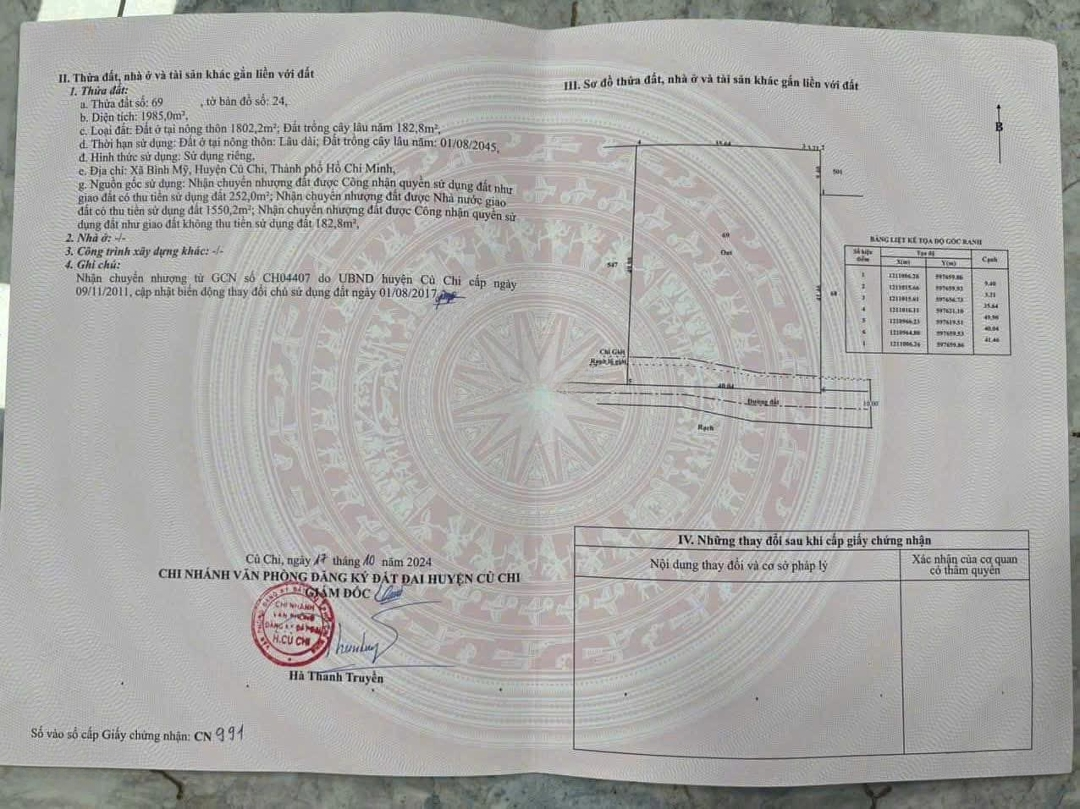 II. Thửa đất, nhà ở và tài sản khác gắn liền với đất
1. Thửa đất:
a. Thửa đất số: 69 , tờ bản đồ số: 24,
b. Diện tích: 1985,0m²,
c. Loại đất: Đất ở tại nông thôn 1802,2m²; Đất trồng cây lâu năm 182,8m²,
d. Thời hạn sử dụng: Đất ở tại nông thôn: Lâu dài; Đất trồng cây lâu năm: 01/08/2045,
đ. Hình thức sử dụng: Sử dụng riêng,
e. Địa chỉ: Xã Bình Mỹ, Huyện Củ Chi, Thành phố Hồ Chí Minh,
g. Nguồn gốc sử dụng: Nhận chuyển nhượng đất được Công nhận quyền sử dụng đất như
giao đất có thu tiền sử dụng đất 252,0m²; Nhận chuyển nhượng đất được Nhà nước giao
đất có thu tiền sử dụng đất 1550,2m²; Nhận chuyển nhượng đất được Công nhận quyền sử
dụng đất như giao đất không thu tiền sử dụng đất 182,8m²,
2. Nhà ở: -/-
3. Công trình xây dựng khác: -/-
4. Ghi chú:
Nhận chuyển nhượng từ GCN số CH04407 do UBND huyện Củ Chi cấp ngày
09/11/2011, cập nhật biến động thay đổi chủ sử dụng đất ngày 01/08/2017
Củ Chi, ngày 17 tháng 10 năm 2024
CHI NHÁNH VĂN PHÒNG ĐĂNG KÝ ĐẤT ĐAI HUYỆN CỦ CHI
GIÁM ĐỐC
CHI NHÁNH
VĂN PHÒNG
ĐĂNG KÝ ĐẤT ĐAI
H.CỦ CHI
Hà Thanh Truyền
Số vào sổ cấp Giấy chứng nhận: CN 991
III. Sơ đồ thửa đất, nhà ở và tài sản khác gắn liền với đất
B
4
35.64
3
3.21
2
9.40
501
69
Ont
547
49.90
41.46
68
Chỉ Giới
Rạch lộ giới
5
40.04
6
Đường đất
10.00
Rạch
BẢNG LIỆT KÊ TỌA ĐỘ GÓC RANH
Số hiệu điểm Tọa độ Cạnh
X(m) Y(m)
1 1211006.26 597659.86
9.40
2 1211015.66 597659.93
3.21
3 1211015.61 597656.73
35.64
4 1211016.11 597621.10
49.90
5 1210966.23 597619.51
40.04
6 1210964.80 597659.53
41.46
1 1211006.26 597659.86
IV. Những thay đổi sau khi cấp giấy chứng nhận
Nội dung thay đổi và cơ sở pháp lý
Xác nhận của cơ quan
có thẩm quyền